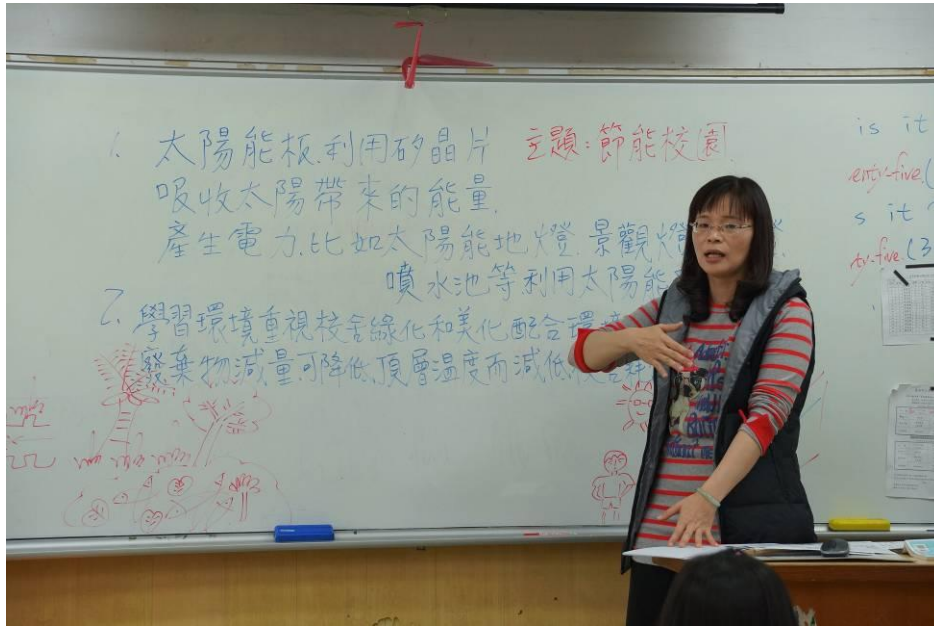 主題:節能校園.
1. 太陽能板.利用矽晶片
吸收太陽帶來的能量.
產生電力.比如太陽能地燈.景觀燈
噴水池等.利用太陽能
2. 學習環境重視校舍綠化和美化.配合環
廢棄物減量.可降低頂層溫度而減低
is it
enty-five.(
s it
ty-five.(3